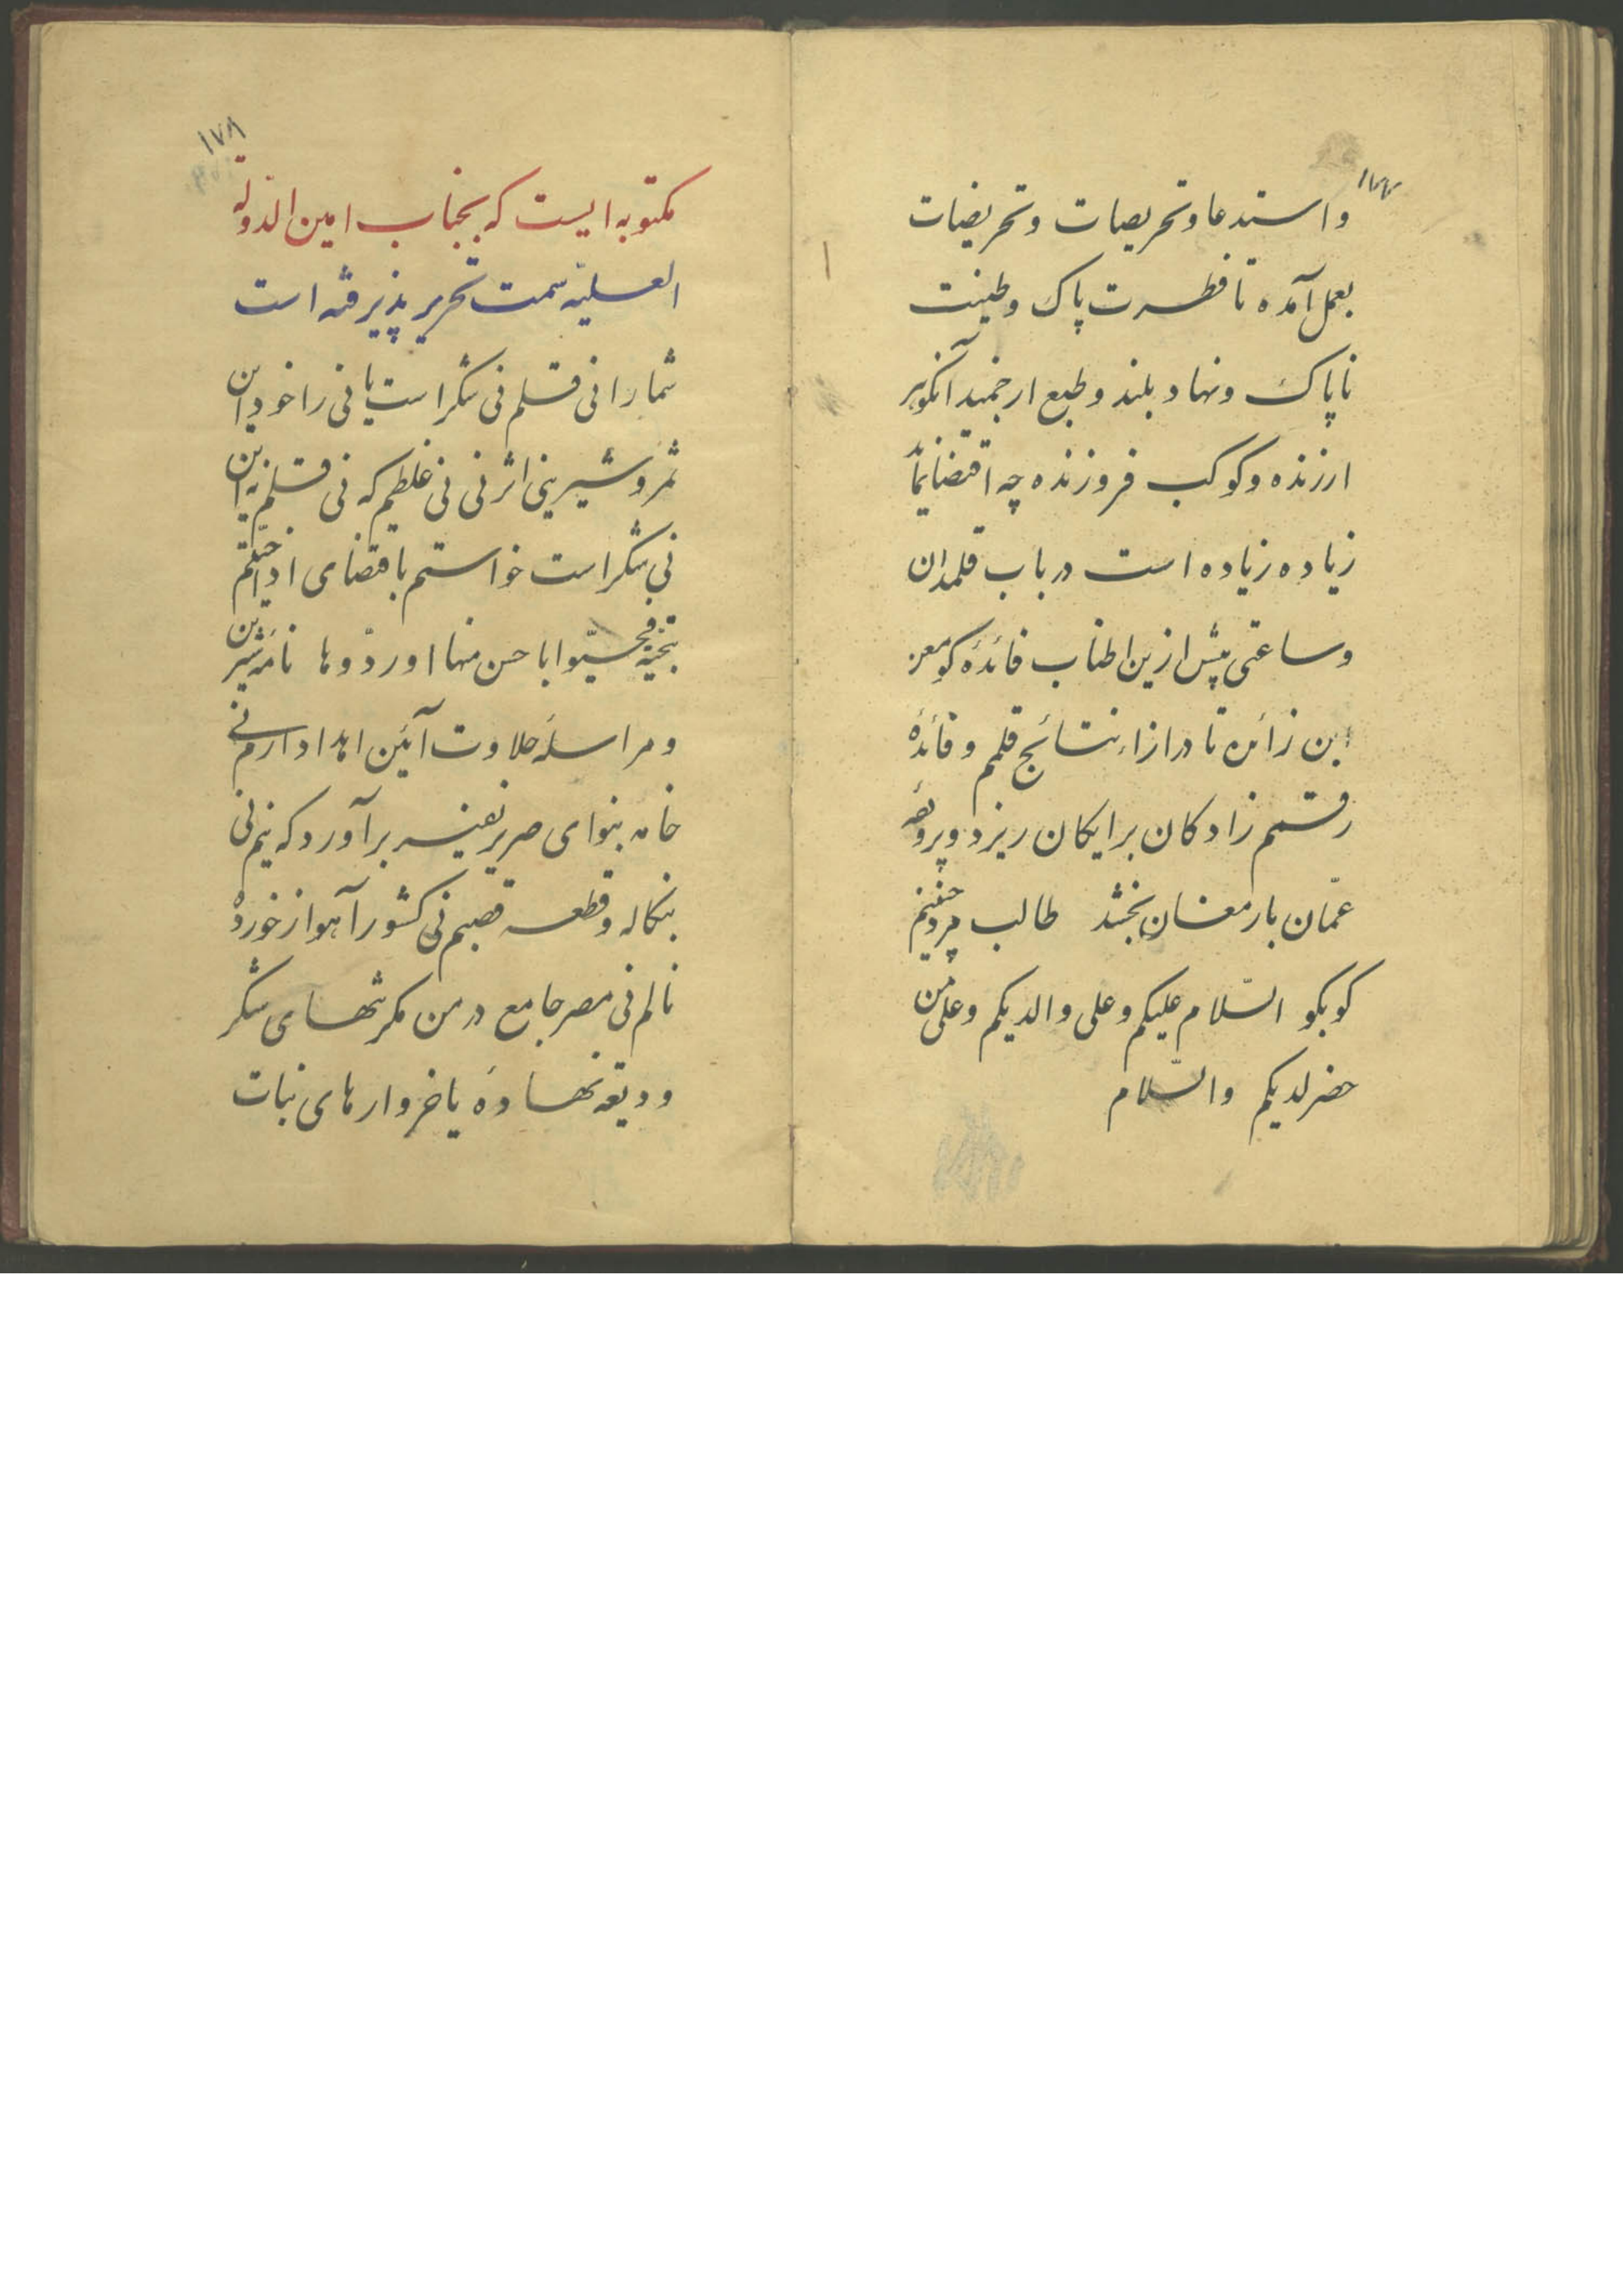 ۱۷۷
واستدعا و تحریصات و تحریضات
بعمل آمده تا فطرت پاک و طینت
ناپاک و نهاد بلند و طبع ارجمند آنکوهر
ارزنده و کوکب فروزنده چه اقتضا نماید
زیاده زیاده است در باب قلمدان
و ساعتی پیش ازین اطناب فائده کو معن
ابن زائره تا در ازاء نتائج قلم و فائدهٔ
رقم زادکان برایکان ریزد و
عمّان بارمغان بخشد طالب
کو بکو السّلام علیکم و علی والدیکم و علی من
حضر لدیکم والسّلام
۱۷۸
مکتوبه ایست که بجناب امین الدوله
العلیّه سمت تحریر پذیرفته است
شما را نی قلم نی شکر است یا نی را خود این
ثمر و شیرینی اثر نی نی غلطم که نی قلم نه این
نی شکر است خواستم باقتضای اذا حیّیتم
بتحیّة فحیّوا باحسن منها او ردّوها نامه شیرین
و مراسلهٔ حلاوت آئین اهدا دارم نی
خامه بنوای صریر نفیر برآورد که نیم نی
بنکاله و قطعه قصبم نی کشور آهواز خورد
نالم نی مصر جامع در من مکر تنکهای شکر
ودیعه نهادهٔ یا خروارهای نبات